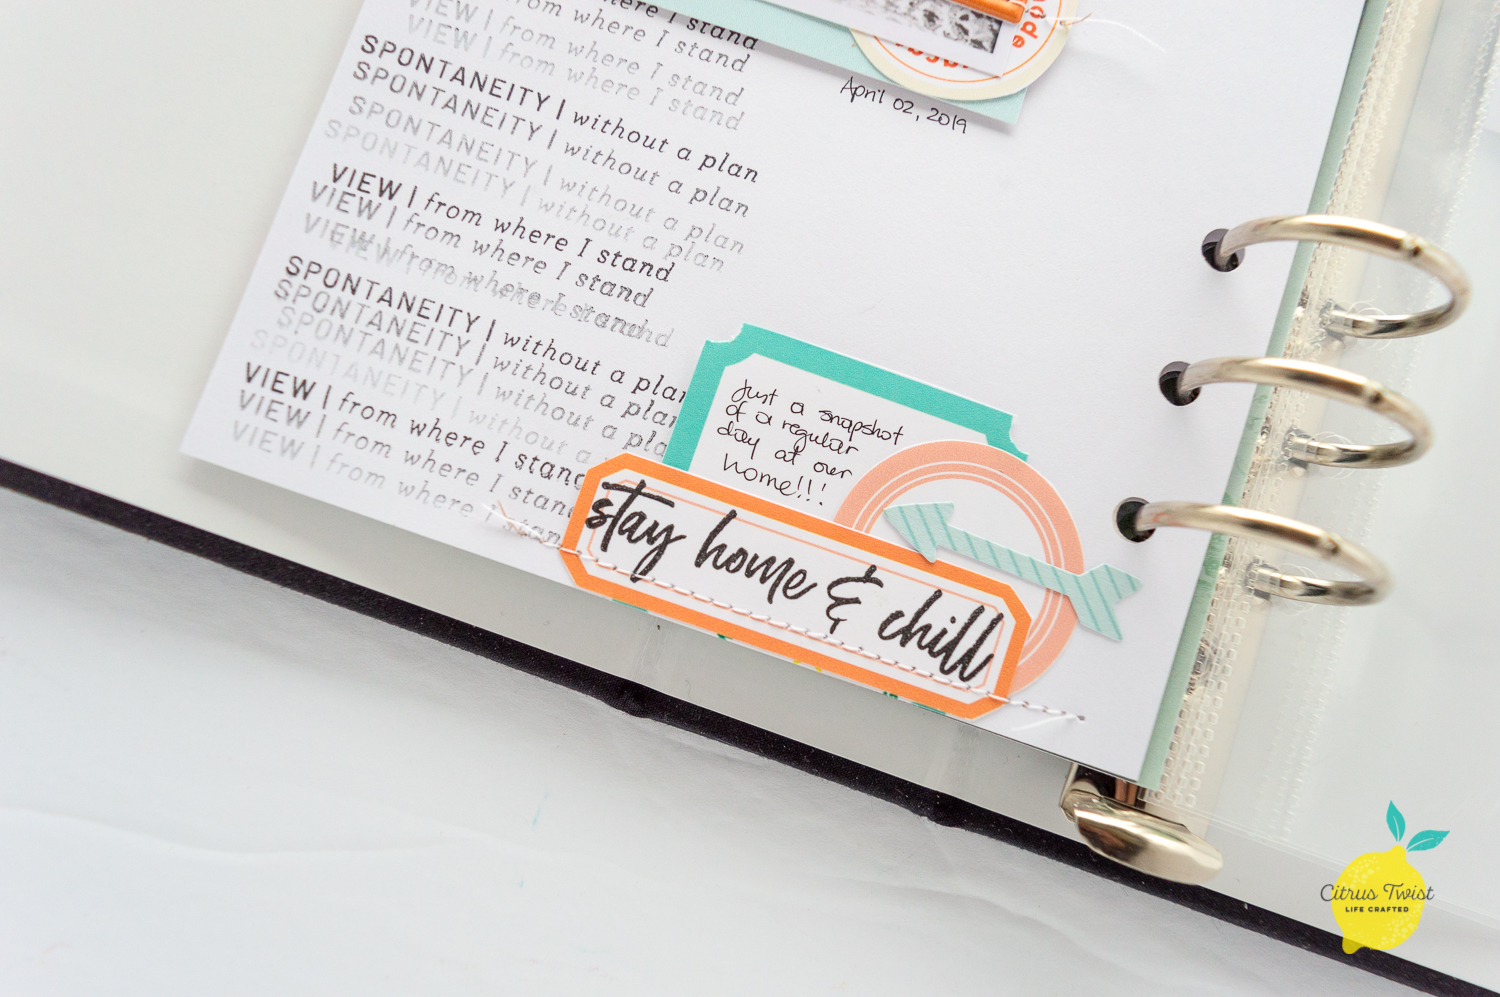 here I stand
VIEW | from where I stand
VIEW | from where I stand
VIEW | from where I stand
SPONTANEITY | without a plan
SPONTANEITY | without a plan
SPONTANEITY | without a plan
SPONTANEITY | without a plan
VIEW | from where I stand
VIEW | from where I stand
VIEW | from where I stand
VIEW | from where I stand
SPONTANEITY | without a plan
SPONTANEITY | without a plan
SPONTANEITY | without a plan
SPONTANEITY | without a
VIEW | from where I stand
VIEW | from where I stand
VIEW | from where I stan
April 02, 2019
Just a snapshot
of a regular
day at our
home!!!
stay home & chill
Citrus Twist
LIFE CRAFTED